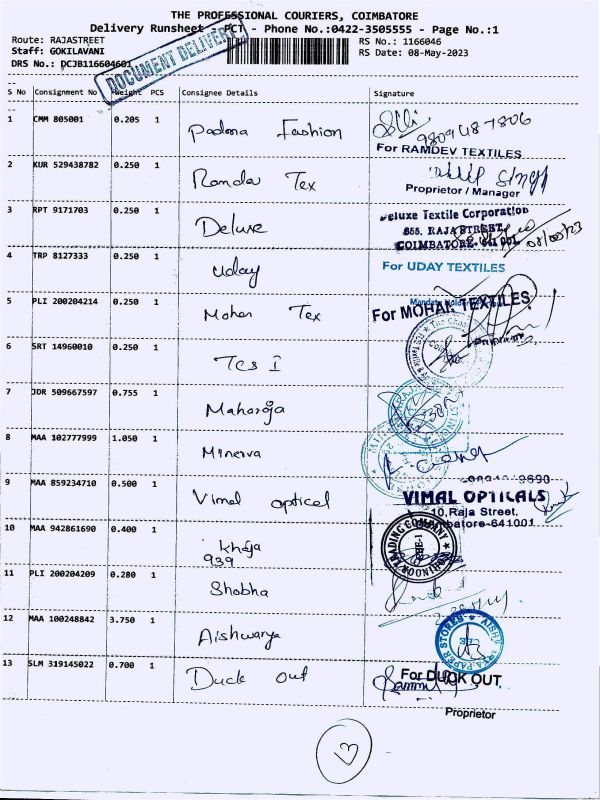 THE PROFESSIONAL COURIERS, COIMBATORE
Delivery Runsheet : PCT - Phone No:0422-3505555 - Page No.:1
Route: RAJASTREET RS No.: 1166046
Staff: GOKILAVANI RS Date: 08-May-2023
DRS No.: DCJB116604601
DOCUMENT DELIVERY
S No Consignment No Weight PCS Consignee Details Signature
1 CMM 805001 0.205 1 Padma Fashion
9809487806
For RAMDEV TEXTILES
2 KUR 529438782 0.250 1 Ramdev Tex
Proprietor / Manager
3 RPT 9171703 0.250 1 Deluxe
Deluxe Textile Corporation
855, RAJA STREET,
COIMBATORE-641 001.
4 TRP 8127333 0.250 1 Uday
For UDAY TEXTILES
5 PLI 200204214 0.250 1 Mohan Tex
For MOHAN TEXTILES
6 SRT 14960010 0.250 1 Tcs I
7 JDR 509667597 0.755 1 Maharaja
8 MAA 102777999 1.050 1 Minerva
9 MAA 859234710 0.500 1 Vimal optical
VIMAL OPTICALS
10, Raja Street,
Coimbatore-641001
10 MAA 942861690 0.400 1 Khaja
939
KOHINOOR TRADING COMPANY
CBE-1
11 PLI 200204209 0.280 1 Shobha
12 MAA 100248842 3.750 1 Aishwarya
13 SLM 319145022 0.700 1 Duck out
For DUCK OUT
Proprietor
13